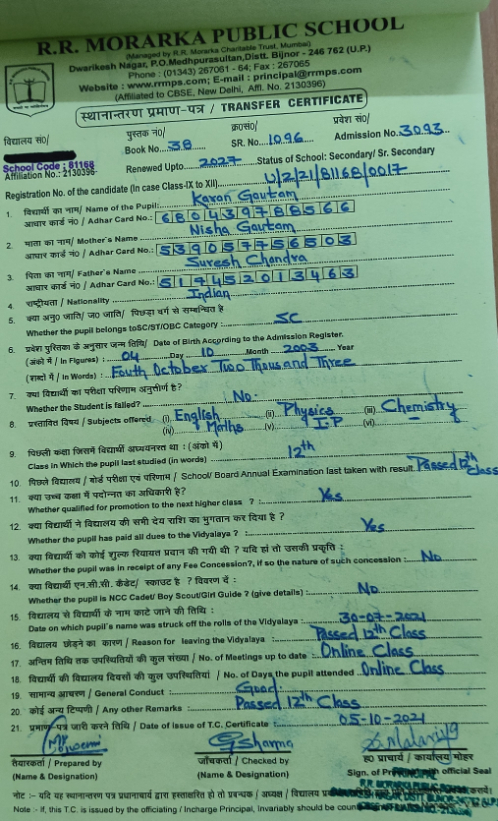 R.R. MORARKA PUBLIC SCHOOL
(Managed by R.R. Morarka Charitable Trust, Mumbai)
Dwarikesh Nagar, P.O.Medhpurasultan,Distt. Bijnor - 246 762 (U.P.)
Phone : (01343) 267061 - 64; Fax : 267065
Website : www.rrmps.com; E-mail : principal@rrmps.com
(Affiliated to CBSE, New Delhi, Affl. No. 2130396)
स्थानान्तरण प्रमाण-पत्र / TRANSFER CERTIFICATE
विद्यालय सं0/ पुस्तक सं0/ क्र0सं0/ प्रवेश सं0/
Book No. 38 SR. No. 1096 Admission No. 3093
School Code : 81168
Affiliation No.: 2130396 Renewed Upto 2027 Status of School: Secondary/ Sr. Secondary
Registration No. of the candidate (in case Class-IX to XII) U/2/21/81168/0017
1. विद्यार्थी का नाम/ Name of the Pupil: Karan Gautam
आधार कार्ड नं0 / Adhar Card No.: 680439788566
2. माता का नाम/ Mother's Name Nisha Gautam
आधार कार्ड नं0 / Adhar Card No.: 539057756503
3. पिता का नाम/ Father's Name Suresh Chandra
आधार कार्ड नं0 / Adhar Card No.: 519452013463
4. राष्ट्रीयता / Nationality Indian
5. क्या अनु0 जाति/ ज0 जाति/ पिछड़ा वर्ग से सम्बन्धित है
Whether the pupil belongs toSC/ST/OBC Category : SC
6. प्रवेश पुस्तिका के अनुसार जन्म तिथि/ Date of Birth According to the Admission Register.
(अंको में / In Figures) : 04 Day 10 Month 2003 Year
(शब्दों में / In Words) : Fouth October Two Thousand Three
7. क्या विद्यार्थी का परीक्षा परिणाम अनुत्तीर्ण है?
Whether the Student is failed? No.
8. प्रस्तावित विषय / Subjects offered (i) English (ii) Physics (iii) Chemistry
(iv) Maths (v) I.P (vi)
9. पिछली कक्षा जिसमें विद्यार्थी अध्ययनरत था : (अंको में)
Class in Which the pupil last studied (in words) 12th
10. पिछले विद्यालय / बोर्ड परीक्षा एवं परिणाम / School/ Board Annual Examination last taken with result Passed 12th Class
11. क्या उच्च कक्षा में पदोन्नत का अधिकारी है?
Whether qualified for promotion to the next higher class ? : Yes
12. क्या विद्यार्थी ने विद्यालय की सभी देय राशि का भुगतान कर दिया है ?
Whether the pupil has paid all dues to the Vidyalaya ? : Yes
13. क्या विद्यार्थी को कोई शुल्क रियायत प्रदान की गयी थी ? यदि हां तो उसकी प्रकृति :
Whether the pupil was in receipt of any Fee Concession?, if so the nature of such concession : No
14. क्या विद्यार्थी एन.सी.सी. कैडेट/ स्काउट है ? विवरण दें :
Whether the pupil is NCC Cadet/ Boy Scout/Girl Guide ? (give details) : No
15. विद्यालय से विद्यार्थी के नाम काटे जाने की तिथि :
Date on which pupil's name was struck off the rolls of the Vidyalaya : 30-07-2021
16. विद्यालय छोड़ने का कारण / Reason for leaving the Vidyalaya : Passed 12th Class
17. अन्तिम तिथि तक उपस्थितियों की कुल संख्या / No. of Meetings up to date : Online Class
18. विद्यार्थी की विद्यालय दिवसों की कुल उपस्थितियां / No. of Days the pupil attended Online Class
19. सामान्य आचरण / General Conduct : Good
20. कोई अन्य टिप्पणी / Any other Remarks : Passed 12th Class
21. प्रमाण-पत्र जारी करने तिथि / Date of Issue of T.C. Certificate : 05-10-2021
G Sharma
तैयारकर्ता / Prepared by जाँचकर्ता / Checked by ह0 प्राचार्य / कार्यालय मोहर
(Name & Designation) (Name & Designation) Sign. of with official Seal
R.R. MORARKA PUBLIC SCHOOL
नोट :- यदि यह स्थानान्तरण पत्र प्रधानाचार्य द्वारा हस्ताक्षरित हो तो प्रबन्धक / अध्यक्ष / विद्यालय
Note :- If this, T.C. is issued by the officiating / Incharge Principal, Invariably should be